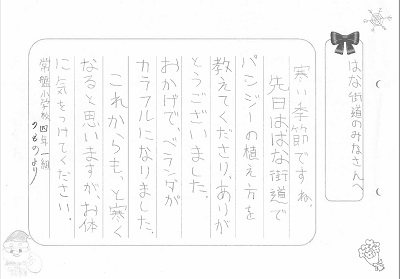 はな街道のみなさんへ
寒い季節ですね。
先日はばな街道で
パンジーの植え方を
教えてくださり、ありが
とうございました。
おかげで、ベランダが
カラフルになりました。
これから、もっと寒く
なると思いますが、お体
に気をつけてください。
常盤小学校四年一組
のものより